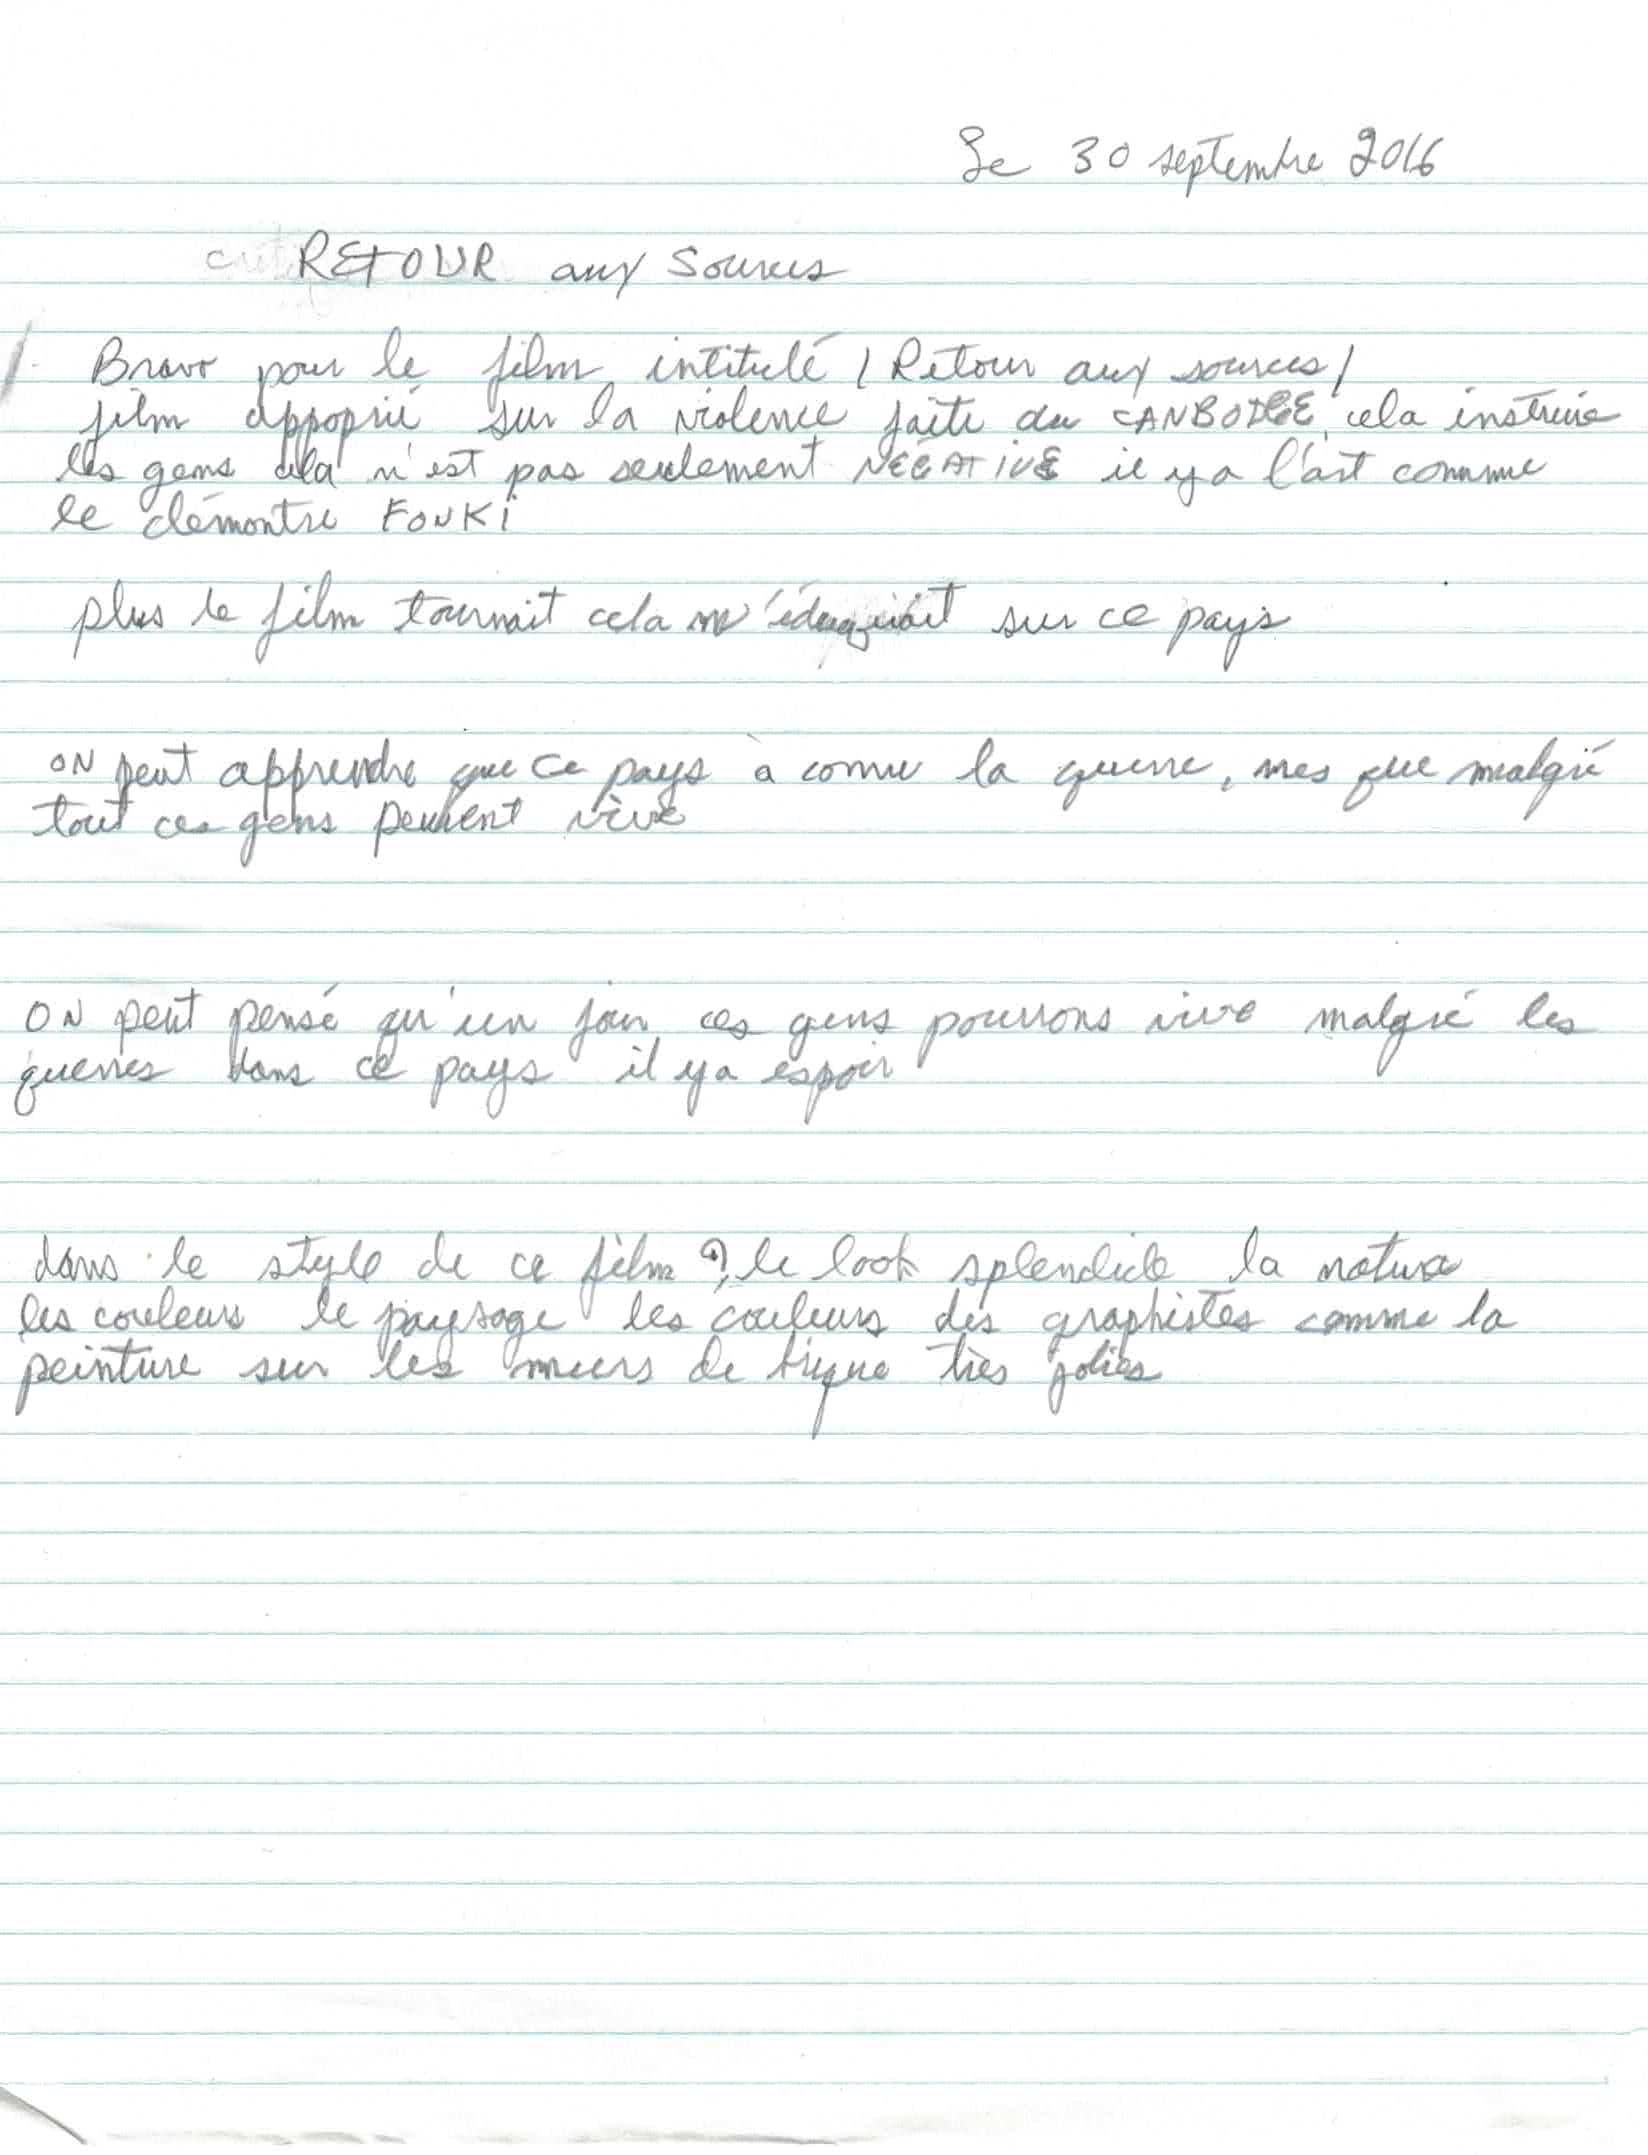 Le 30 septembre 2016
RETOUR aux Sources
Bravo pour le film intitulé / Retour aux sources /
film appoprié sur la violence faite au CANBODGE, cela instruie
les gens cela n'est pas seulement NÉGATIVE il y a l'art comme
le démontre FONKi
plus le film tournait cela m'éduquait sur ce pays
ON peut apprendre que ce pays à connu la guerre, mes que malgré
tout ces gens peuvent vivre
ON peut pensé qu'un jour ces gens pourrons vivre malgré les
guerres dans ce pays il y a espoir
dans le style de ce film, le look splendide la nature
les couleurs le paysage les couleurs des graphistes comme la
peinture sur les murs de brique très jolies